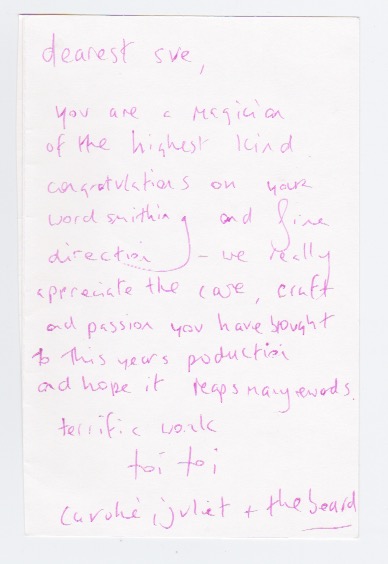 dearest sue,
you are a magician
of the highest kind
congratulations on your
wordsmithing and fine
direction – we really
appreciate the care, craft
and passion you have brought
to this years production
and hope it reaps many rewards.
terrific work
toi toi
juliet + the board